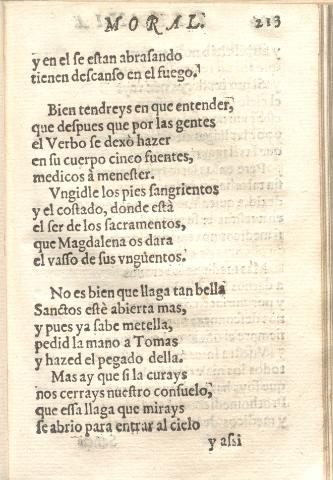 MORAL. 213
y en el se estan abrasando
tienen descanso en el fuego.
Bien tendreys en que entender,
que despues que por las gentes
el Verbo se dexò hazer
en su cuerpo cinco fuentes,
medicos à menester.
Vngidle los pies sangrientos
y el costado, donde està
el ser de los sacramentos,
que Magdalena os dara
el vasso de sus vnguentos.
No es bien que llaga tan bella
Sanctos estè abierta mas,
y pues ya sabe metella,
pedid la mano a Tomas
y hazed el pegado della.
Mas ay que si la curays
nos cerrays nuestro consuelo,
que essa llaga que mirays
se abrio para entrar al cielo
y assi